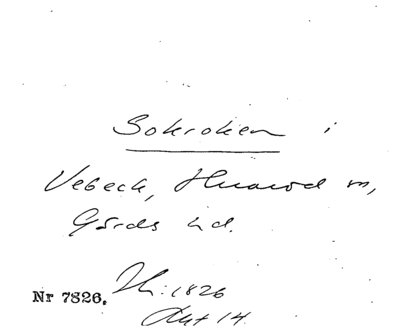 Sokroken i
Vebeck, Huarod sn,
Gärds hd.
Nr 7826. :1826
Akt 14